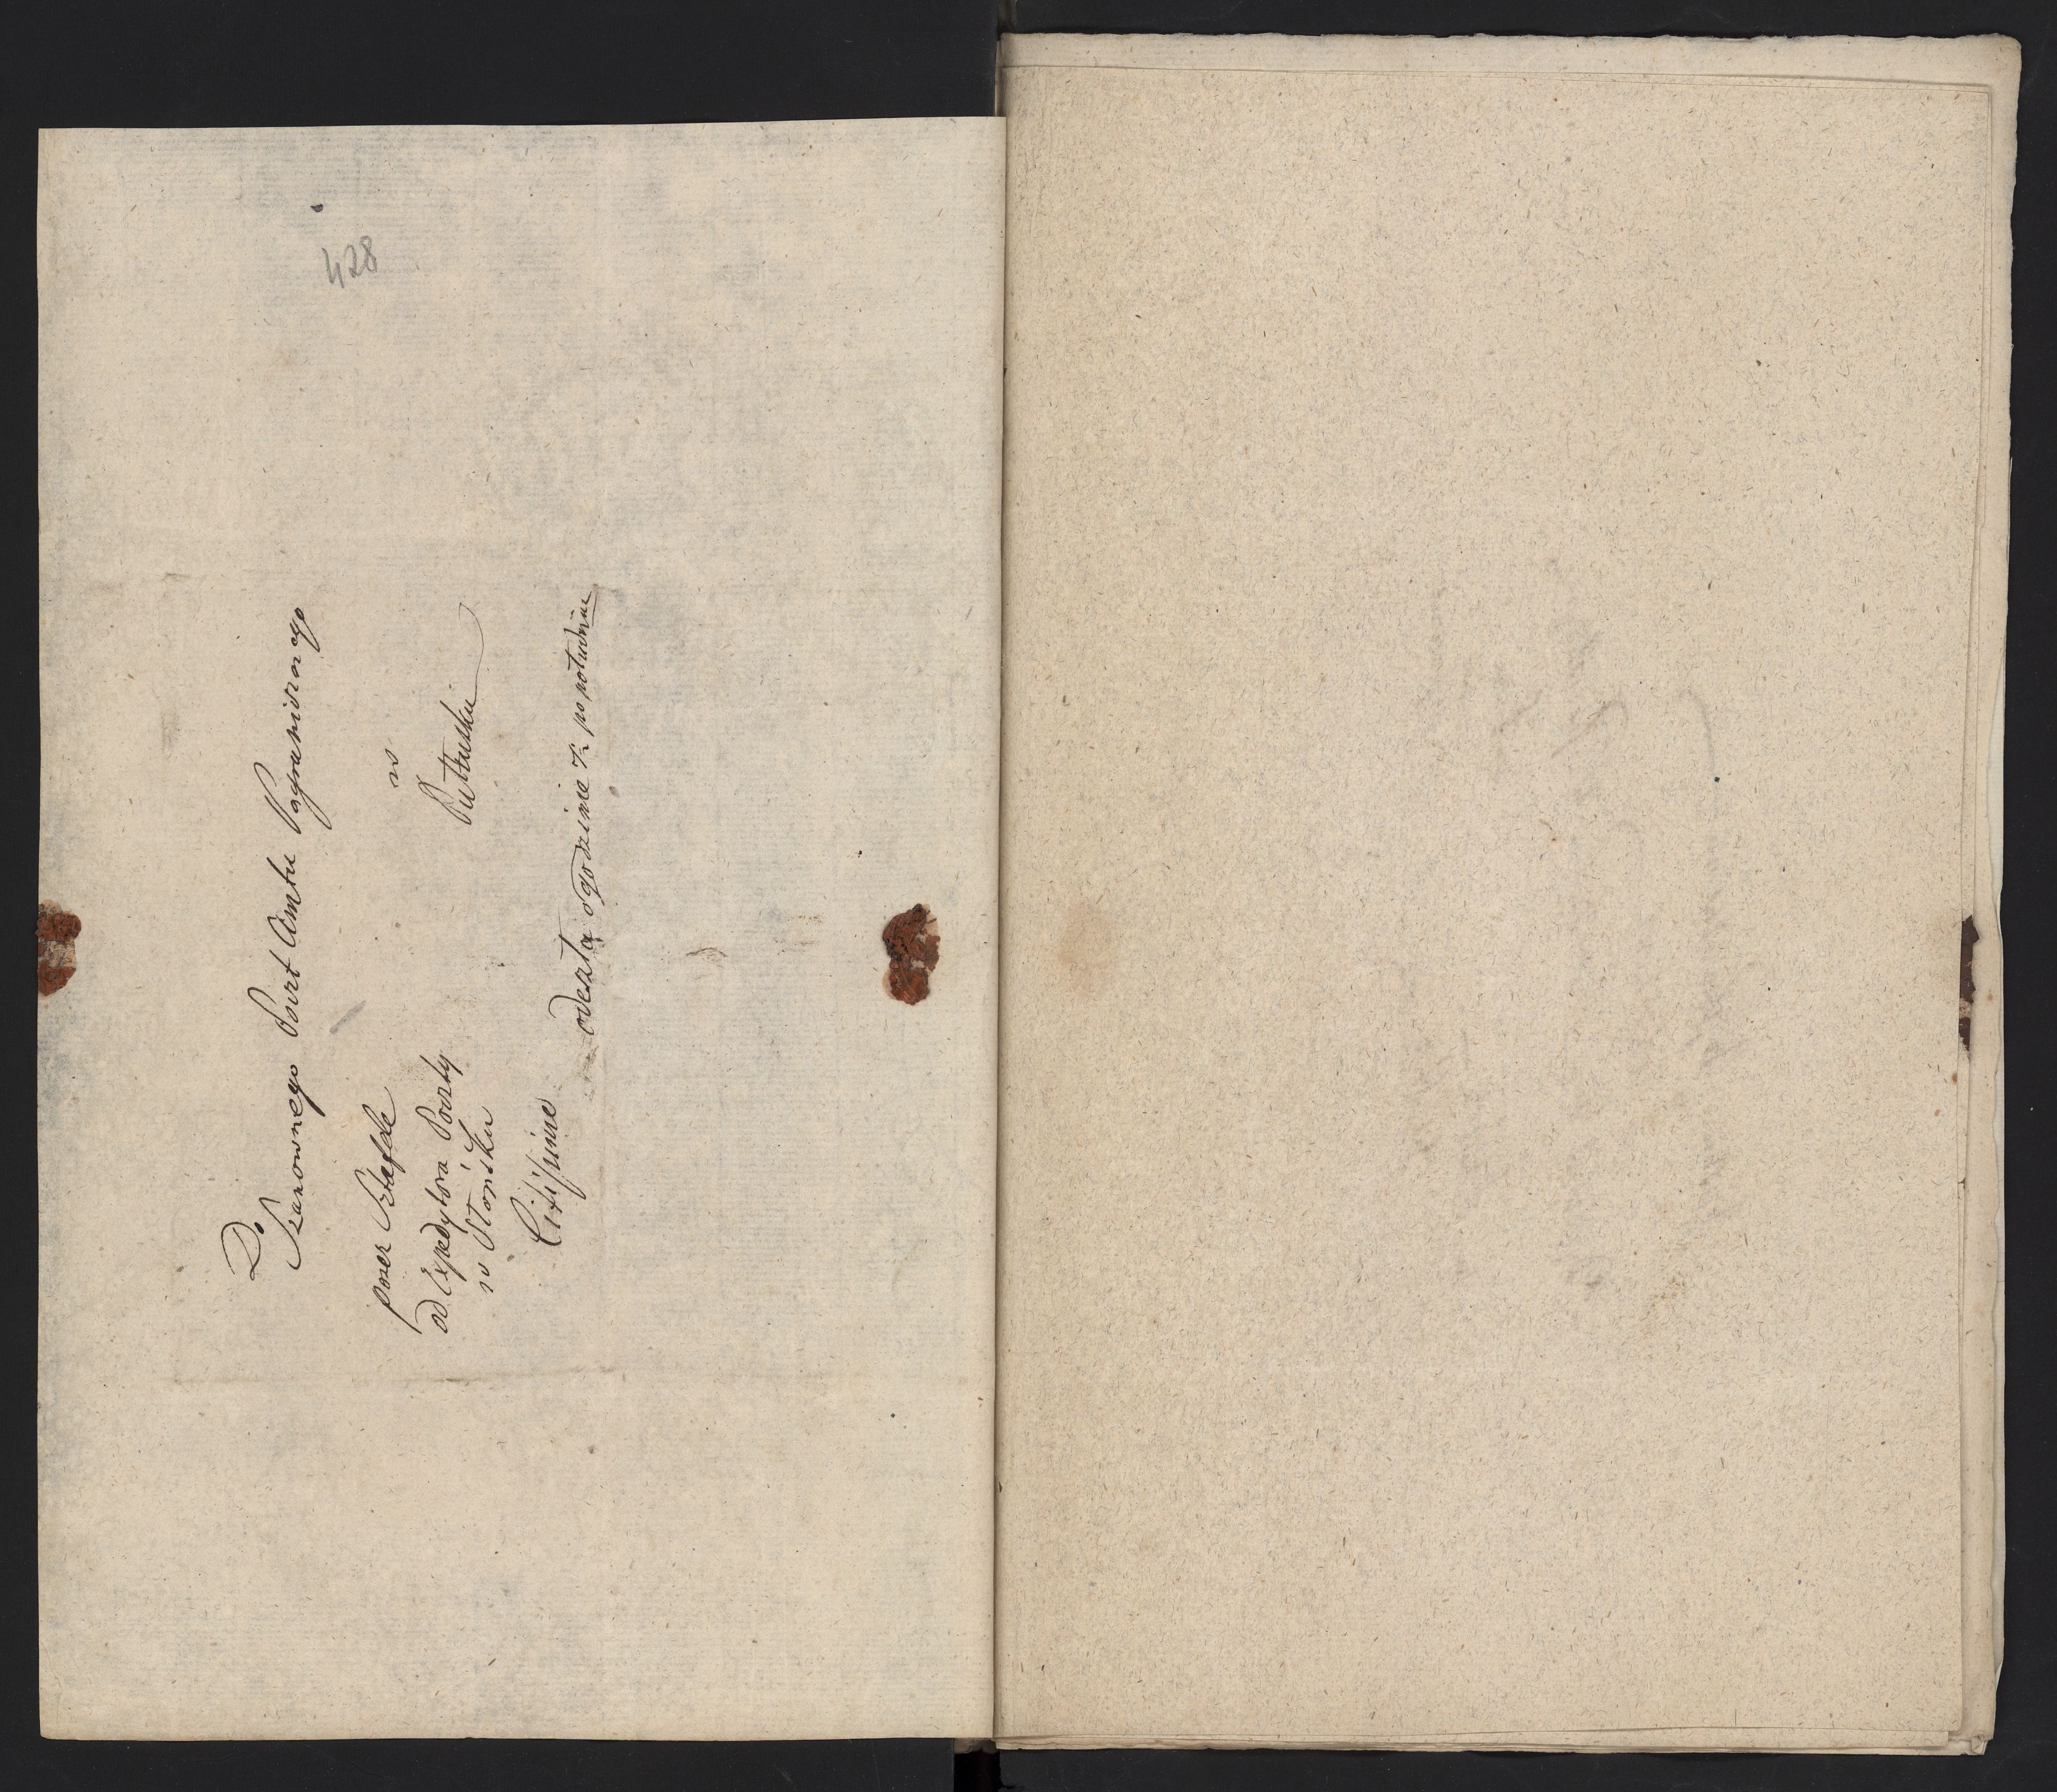 428
Do
Szanownego Poczt Amtu Pogranicznego
w
Pułtusku
przez Sztafetę
od Expedytora Poczty
w Płońsku
Citissime
odeszła o godzinie 7. po południu